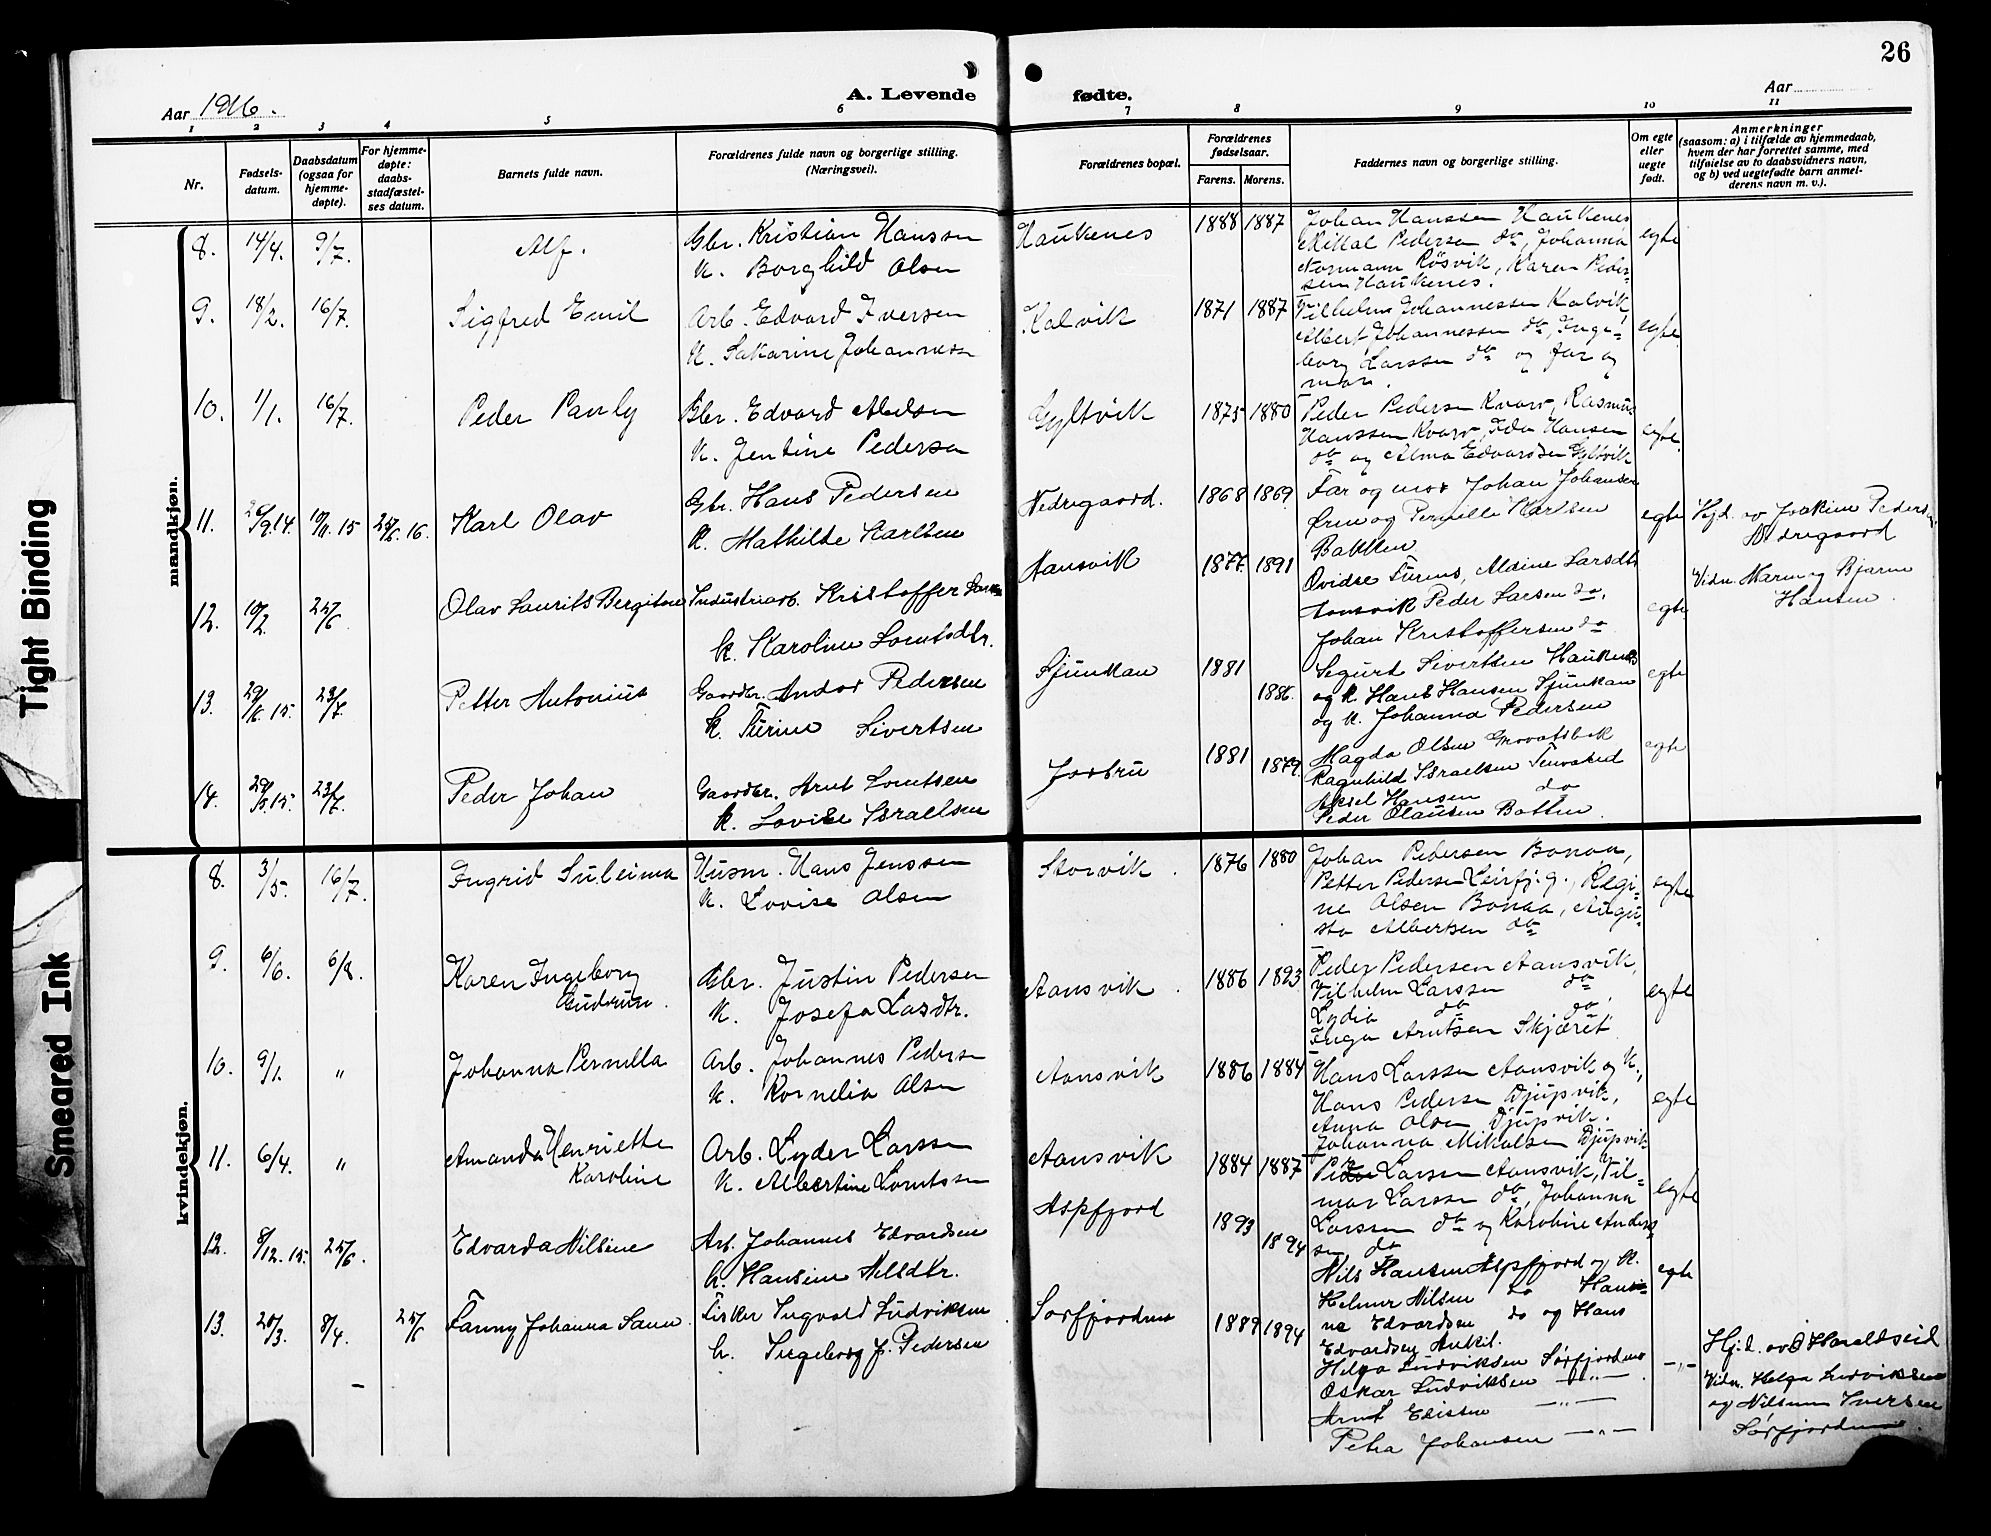 26
Aar 1916.
A. Levende fødte.
Aar
1 2 3 4 5 6 7 8 9 10 11
Nr.
Fødsels-
datum.
Daabsdatum
(ogsaa for
hjemme-
døpte).
For hjemme-
døpte:
daabs-
stadfæstel-
ses datum.
Barnets fulde navn.
Forældrenes fulde navn og borgerlige stilling.
(Næringsvei).
Forældrenes bopæl.
Forældrenes
fødselsaar.
Farens. Morens.
Faddernes navn og borgerlige stilling.
Om egte
eller
uegte
født.
Anmerkninger
(saasom: a) i tilfælde av hjemmedaab,
hvem der har forrettet samme, med
tilføielse av to daabsvidners navn,
og b) ved uegtefødte barn anmel-
derens navn m. v.).
mandkjøn.
8. 14/4. 9/7. Alf.
Gbr. Kristian Hanssen
K. Borghild Olsen
Haukenes 1888 1887
Johan Hanssen Haukenes
Mikkal Pedersen do, Johanna
Normann Røsvik, Karen Peder-
sen Haukenes.
egte
9. 18/2. 16/7. Sigfred Emil
Arb. Edvard Iversen
K. Sakarine Johannesen
Kalvik 1871 1887
Vilhelm Johannessen Kalvik,
Albert Johannessen do, Inge-
borg Larssen do og far og
mor.
egte.
10. 1/1. 16/7. Peder Pauly
Gbr. Edvard Abelsen
K. Jentine Pedersen
Gyltvik 1875 1880
Peder Pedersen Kvarv, Rasmus
Hanssen Kvarv, Ida Hansen
do og Alma Edvardsen Gyltvik
egte.
11. 26/9.14. 10/11.15 25/6.16. Karl Olav
Gbr. Hans Pedersen
K. Mathilde Karlsen
Nedregaard. 1868 1869
Far og mor Johan Johansen
Ørnes og Pernille Karlsen
Bakken
egte
Hjd. av Joakim Peders.
Nedregaard
Vidn. Maren og Bjarne
Hansen.
12. 10/2. 25/6 Olav Laurits Bergiton
Industriarb. Kristoffer Larsen
K. Karoline Lorntsdtr.
Aansvik 1877. 1891
Aldine Larsdtr
Aansvik Peder Larsen do.
Johan Kristoffersen do
egte
13. 29/6.15. 23/7. Petter Antonius
Gaardbr. Andor Pedersen
K. Turine Sivertsen
Sjunkan 1881 1886.
Segurd Sivertsen Haukenes
og K. Hans Hansen Sjunkan
og K. Johanna Pedersen
egte
14. 29/5.15. 23/7. Peder Johan
Gaardbr. Arnt Lorntsen
K. Lovise Israelsen
Jostru 1881 1879.
Magda Olsen
Ragnhild Israelsen
Aksel Hansen do
Peder Olausen Botten.
egte
kvindekjøn.
8. 3/5. 16/7. Ingrid Suleima
Husm. Hans Jenssen
K. Lovise Olsen
Storvik. 1876 1880
Johan Pedersen Bonaa,
Petter Pedersen Leirfj.g., Regi-
ne Olsen Bonaa, Augu-
sta Albertsen do
egte
9. 6/6. 6/8. Karen Ingeborg
Gudrun.
Gbr. Justin Pedersen
K. Josefa Lasdtr.
Aansvik. 1886 1893
Peder Pedersen Aansvik,
Vilhelm Larssen do
Lydia do do,
Inga Arntsen Skjæret
egte
10. 9/1. " Johanna Pernilla
Arb. Johannes Pedersen
K. Kornelia Olsen
Aansvik 1886 1884
Hans Larssen Aansvik og K.,
Hans Pedersen Djupvik,
Anna Olsen Djupvik.
Johanna Mikalsen Djupvik
egte
11. 6/4. " Amanda Henriette
Karoline
Arb. Lyder Larssen
K. Albertine Lorntssen
Aansvik 1884 1887
Peder Larssen Aansvik, Vil-
mar Larssen do, Johanna
Larssen do og Karoline Anders
sen do
egte
12. 8/12.15. 25/6. Edvarda Nilsine
Arb. Johannes Edvardsen
K. Hansine Nilsdtr.
Aspfjord 1893 1894
Nils Hansen Aspfjord og K.
Helmer Nilsen do Hansi-
ne Edvardsen do og Hans
Edvardsen
egte
13. 20/3. 8/4. 25/6 Fanny Johanna Saun
Fisker Ingvald Ludviksen
K. Ingeborg J. Pedersen
Sørfjorden 1889 1894
Helga Ludviksen Sørfjorden
Oskar Ludviksen —"—
Arnt Edissen —"—
Petra Johansen —"—
—"—
Hjd. av O Haraldseid
Vidn. Helga Ludviksen
og Nilsine Iversen
Sørfjorden.
Tight Binding
Smeared Ink